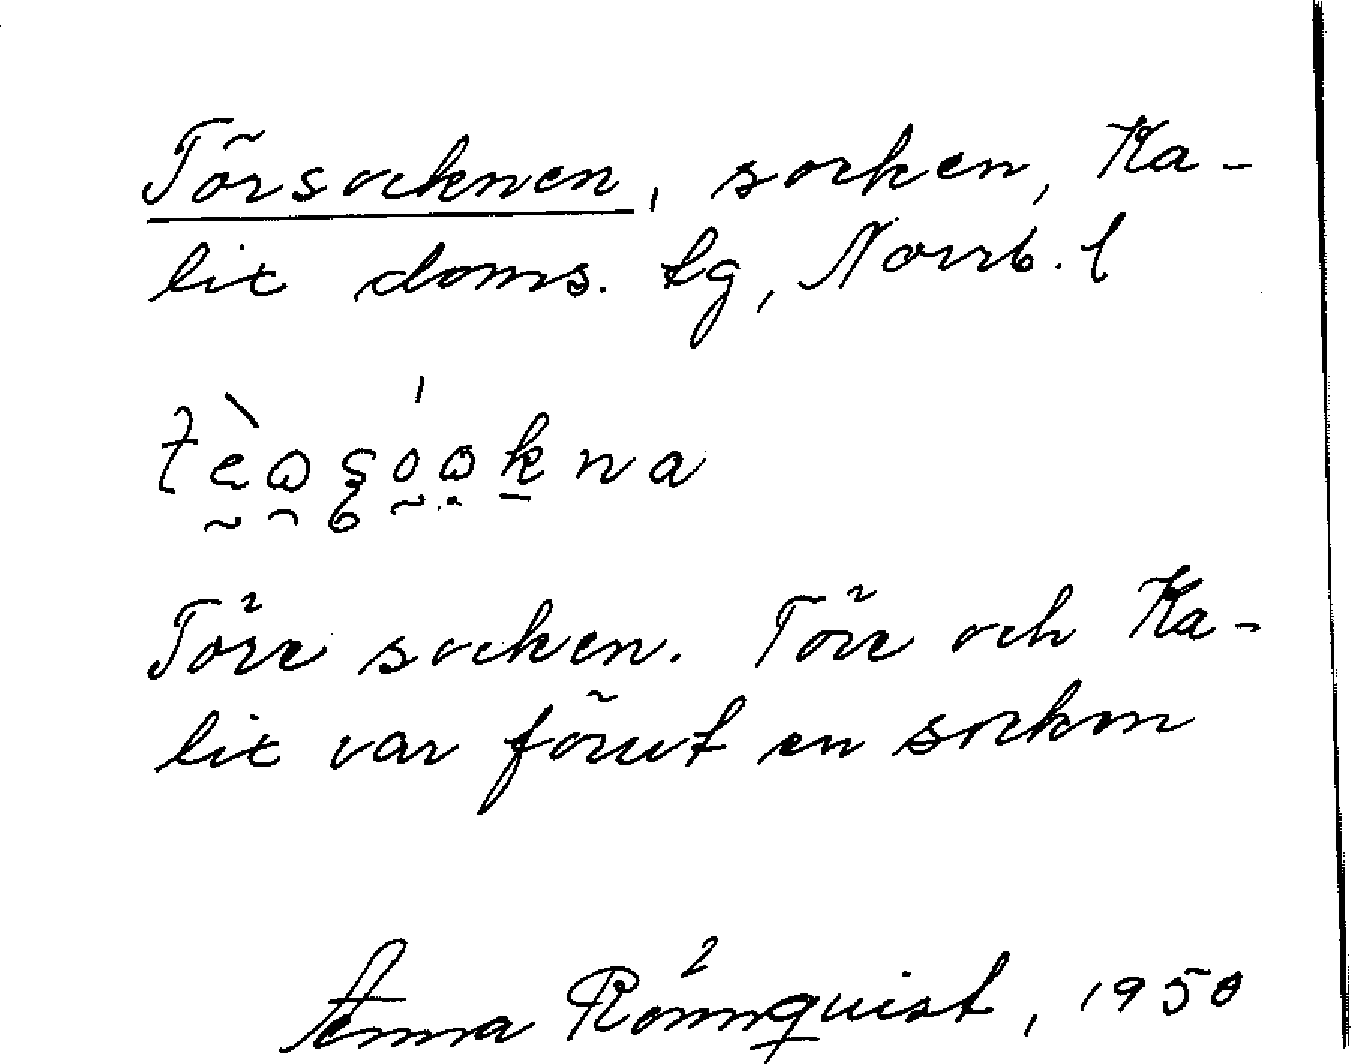 Törsocknen, socken, Ka-
lix doms. tg, Norrb. l
Töre socken. Töre och Ka-
lix var förut en socken
Anna Rönnquist, 1950